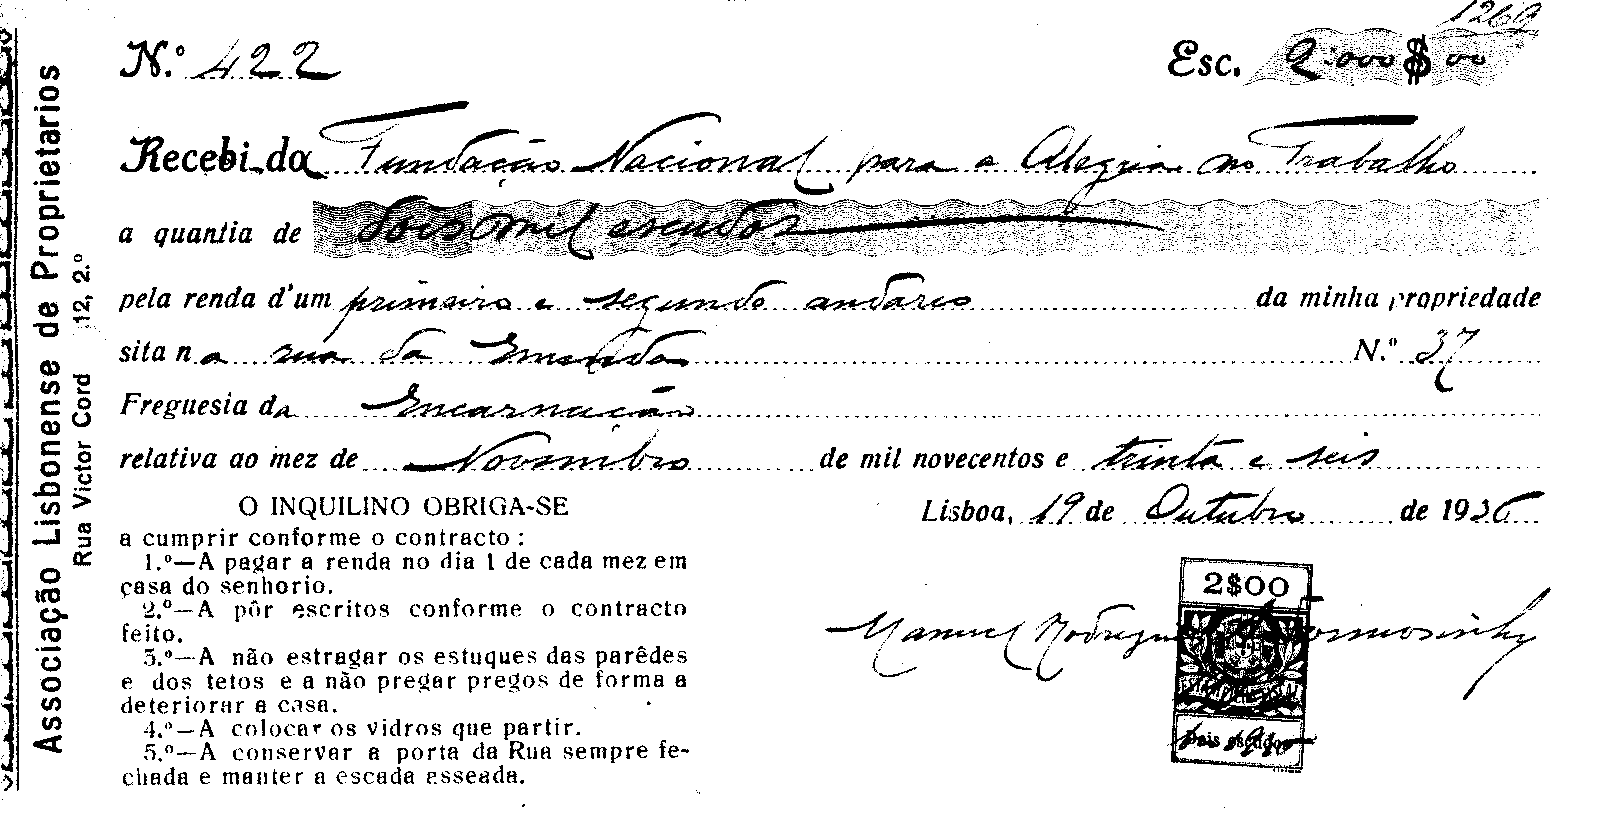 1269
N.º 422
Esc. 2.000$00
Recebi da Fundação Nacional para a Alegria no Trabalho
a quantia de dois mil escudos
pela renda d'um primeiro e segundo andares da minha propriedade
sita na rua da Emenda N.º 37
Freguesia da Encarnação
relativa ao mez de Novembro de mil novecentos e trinta e seis
Lisboa, 19 de Outubro de 1936
O INQUILINO OBRIGA-SE
a cumprir conforme o contracto:
1.º—A pagar a renda no dia 1 de cada mez em
casa do senhorio.
2.º—A pôr escritos conforme o contracto
feito.
3.º—A não estragar os estuques das parêdes
e dos tetos e a não pregar pregos de forma a
deteriorar a casa.
4.º—A colocar os vidros que partir.
5.º—A conservar a porta da Rua sempre fe-
chada e manter a escada asseada.
2$00
Manuel Rodrigues
Dois escudos
Associação Lisbonense de Proprietarios
Rua Victor Cord 12, 2.º